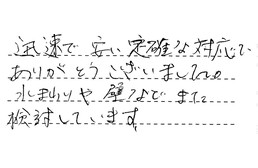 迅速で安い定確な対応で
ありがとうございました。
水まわりや壁などでまた
検討しています。